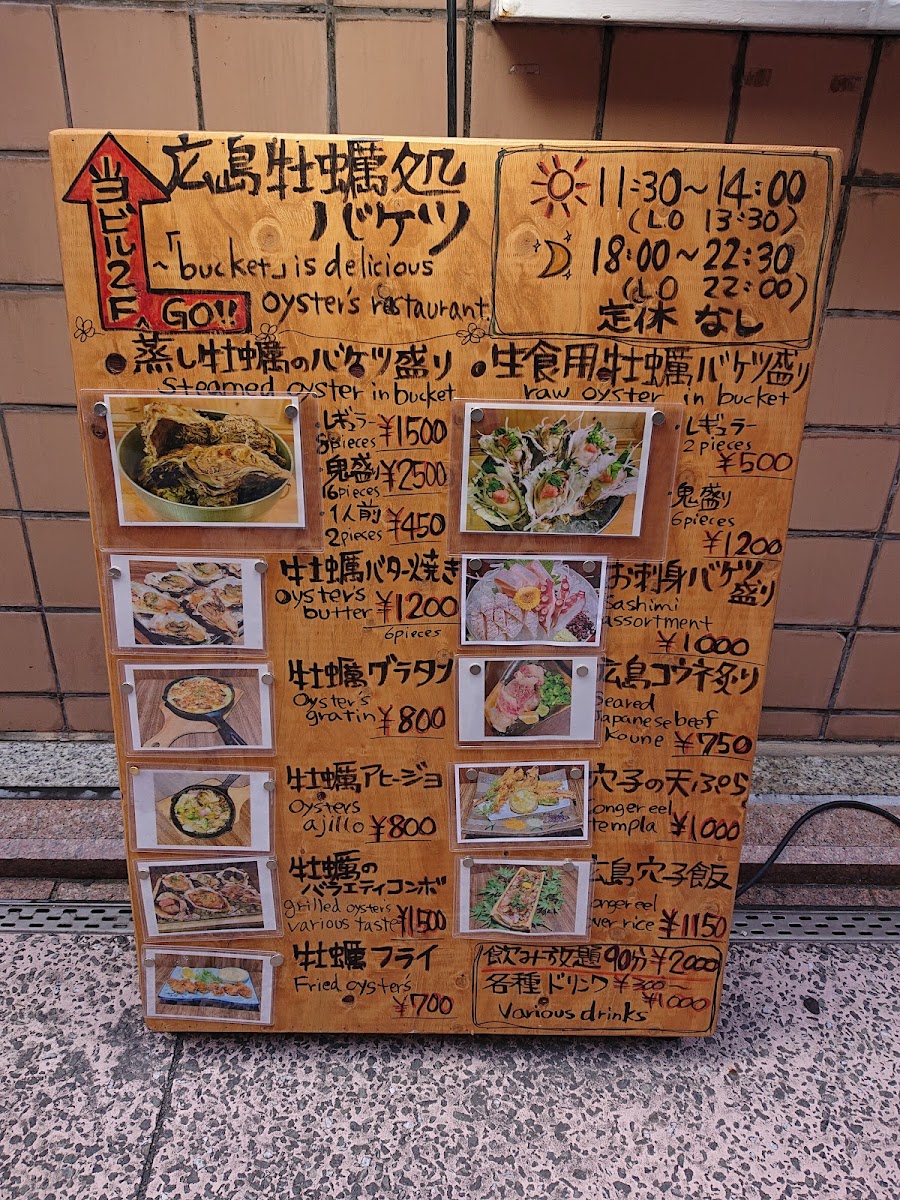 当ビル2F GO!!
広島牡蠣処
バケツ
~「bucket」is delicious
oyster's restaurant
11:30~14:00
(LO 13:30)
18:00~22:30
(LO 22:00)
定休 なし
蒸し牡蠣のバケツ盛り
Steamed oyster in bucket
レギュラー
pieces ¥1500
鬼盛り ¥2500
16pieces
1人前
2pieces ¥450
牡蠣バター焼き
Oyster's
butter ¥1200
6pieces
牡蠣グラタン
Oyster's
gratin ¥800
牡蠣アヒージョ
Oysters
ajillo ¥800
牡蠣の
バラエティコンボ
grilled oyster's
various taste ¥1500
牡蠣フライ
Fried oyster's
¥700
生食用牡蠣バケツ盛り
raw oyster in bucket
レギュラー
2pieces
¥500
鬼盛り
6pieces
¥1200
お刺身バケツ
盛り
Sashimi
assortment
¥1000
広島コウネ炙り
Seared
Japanese beef
koune ¥750
穴子の天ぷら
onger eel
templa ¥1000
広島穴子飯
onger eel
ver rice ¥1150
飲み放題90分¥2000
各種ドリンク ¥300~
¥1000
Various drinks